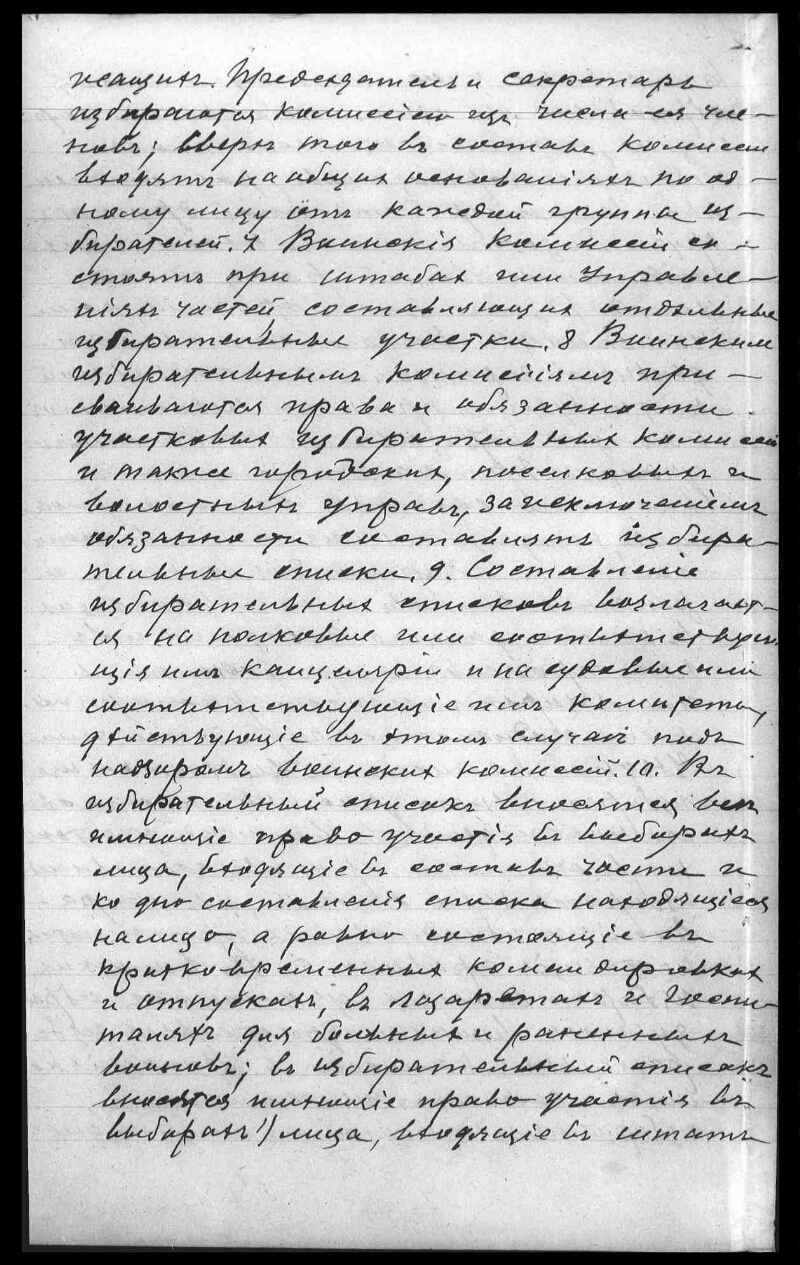 жащих. Председатель и секретарь
избираются комиссiею изъ числа ея чле-
новъ; сверхъ того въ составъ комиссии
входятъ на общихъ основанiяхъ по од-
ному лицу отъ каждой группы из-
бирателей. 7 Воинскiя комиссiи со-
стоятъ при штабах или управле-
нiяхъ частей, составляющих отдельные
избирательные участки. 8 Воинским
избирательнымъ комиссiямъ при-
сваиваются права и обязанности
участковых избирательных комиссий
и также городских, поселковыхъ и
волостныхъ управъ, за исключенiемъ
обязанности составлять избира-
тельные списки. 9. Составленiе
избирательных списковъ возлагает-
ся на полковые или соответствую-
щiя имъ канцелярiи и на судовые или
соответствующiе имъ комитеты,
действующiе въ этомъ случае подъ
надзоромъ воинских комиссiй. 10. Въ
избирательный списокъ вносятся все
имеющiе право участiя въ выборахъ
лица, входящiе въ составъ части и
ко дню составленiя списка находящiеся
налицо, а равно состоящiе въ
кратковременных командировках
и отпусках, въ лазаретахъ и госпи-
талях для больных и раненныхъ
воиновъ; въ избирательный списокъ
вносятся имеющiе право участiя въ
выборахъ 1) лица, входящiе въ штатъ